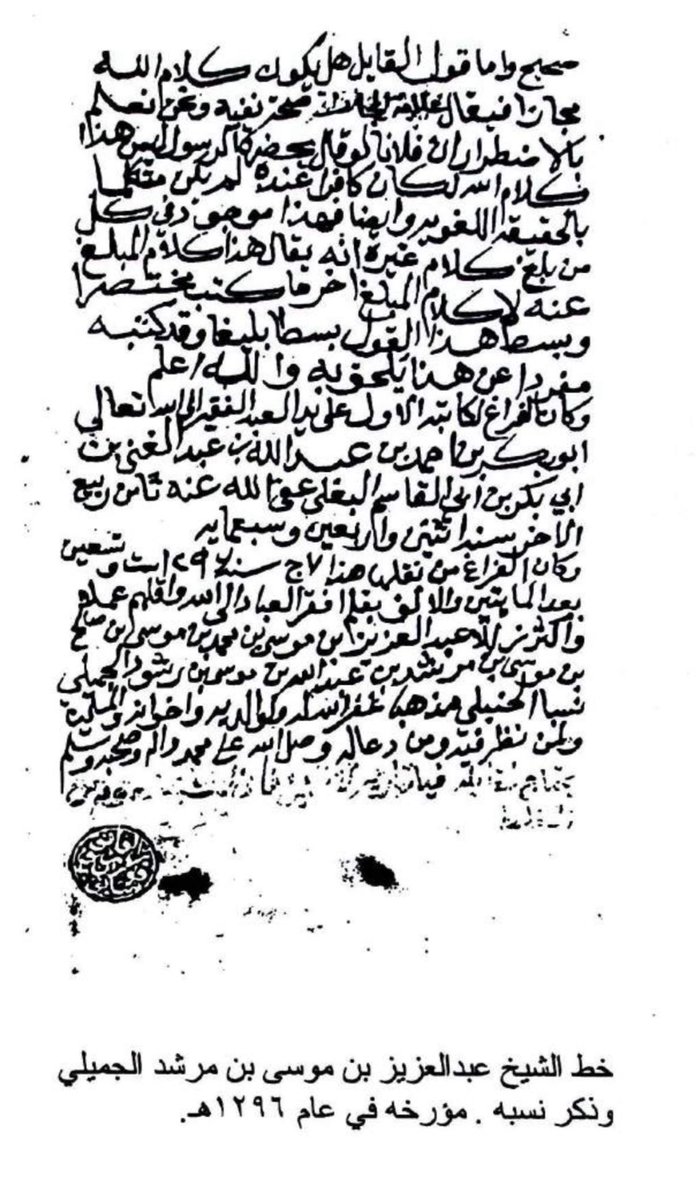 صحيح واما قول القايل هل يكون كلام الله
مجازا فيقال علامة المجاز صحة نفيه ونحن نعلم
بالاضطرار ان فلانا لو قال بحضرة الرسول ليس هذا
كلام الله لكان كافرا عنده لم يكن متكلما
بالحقيقة اللغويه وايضا فهذا موجود في كل
من بلغ كلام غيره انه يقال هذا كلام المبلغ
عنه لا كلام المبلغ اخر ما كتب مختصرا
وبسط هذا القول بسطا بليغا وقد كتبه
مفردا عن هذا يلحق به والله اعلم
وكان الفراغ لكاتبه الاول على يد العبد الفقير الى الله تعالى
ابو بكر بن احمد بن عبد الله بن عبد الغني بن
ابي بكر بن ابي القاسم البعلي عفى الله عنه ثامن ربيع
الاخر سنة اثنتين واربعين وسبعمايه
وكان الفراغ من نقله هذا ٧ ج سنة ١٢٩٦ ست وتسعين
بعد المايتين والالف بقلم افقر العباد الى الله واقلهم عملا
واكثرهم زللا عبد العزيز ابن موسى بن محمد بن موسى بن صالح
بن موسى بن مرشد بن عبد الله بن موسى بن رشود الجميلي
نسبا الحنبلي مذهبا غفر الله له ولوالديه واخوانه والمسلمين
ولمن نظر فيه ومن دعا له وصلى الله على محمد واله وصحبه وسلم
خط الشيخ عبدالعزيز بن موسى بن مرشد الجميلي
وذكر نسبه . مؤرخه في عام ١٢٩٦هـ.